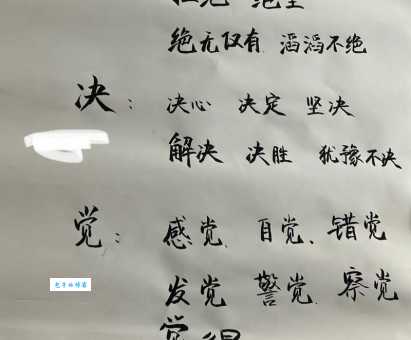 拒绝 绝望
绝无仅有 滔滔不绝
决： 决心 决定 坚决
解决 决胜 犹豫不决
觉： 感觉、自觉、错觉
发觉 警觉、察觉
觉得